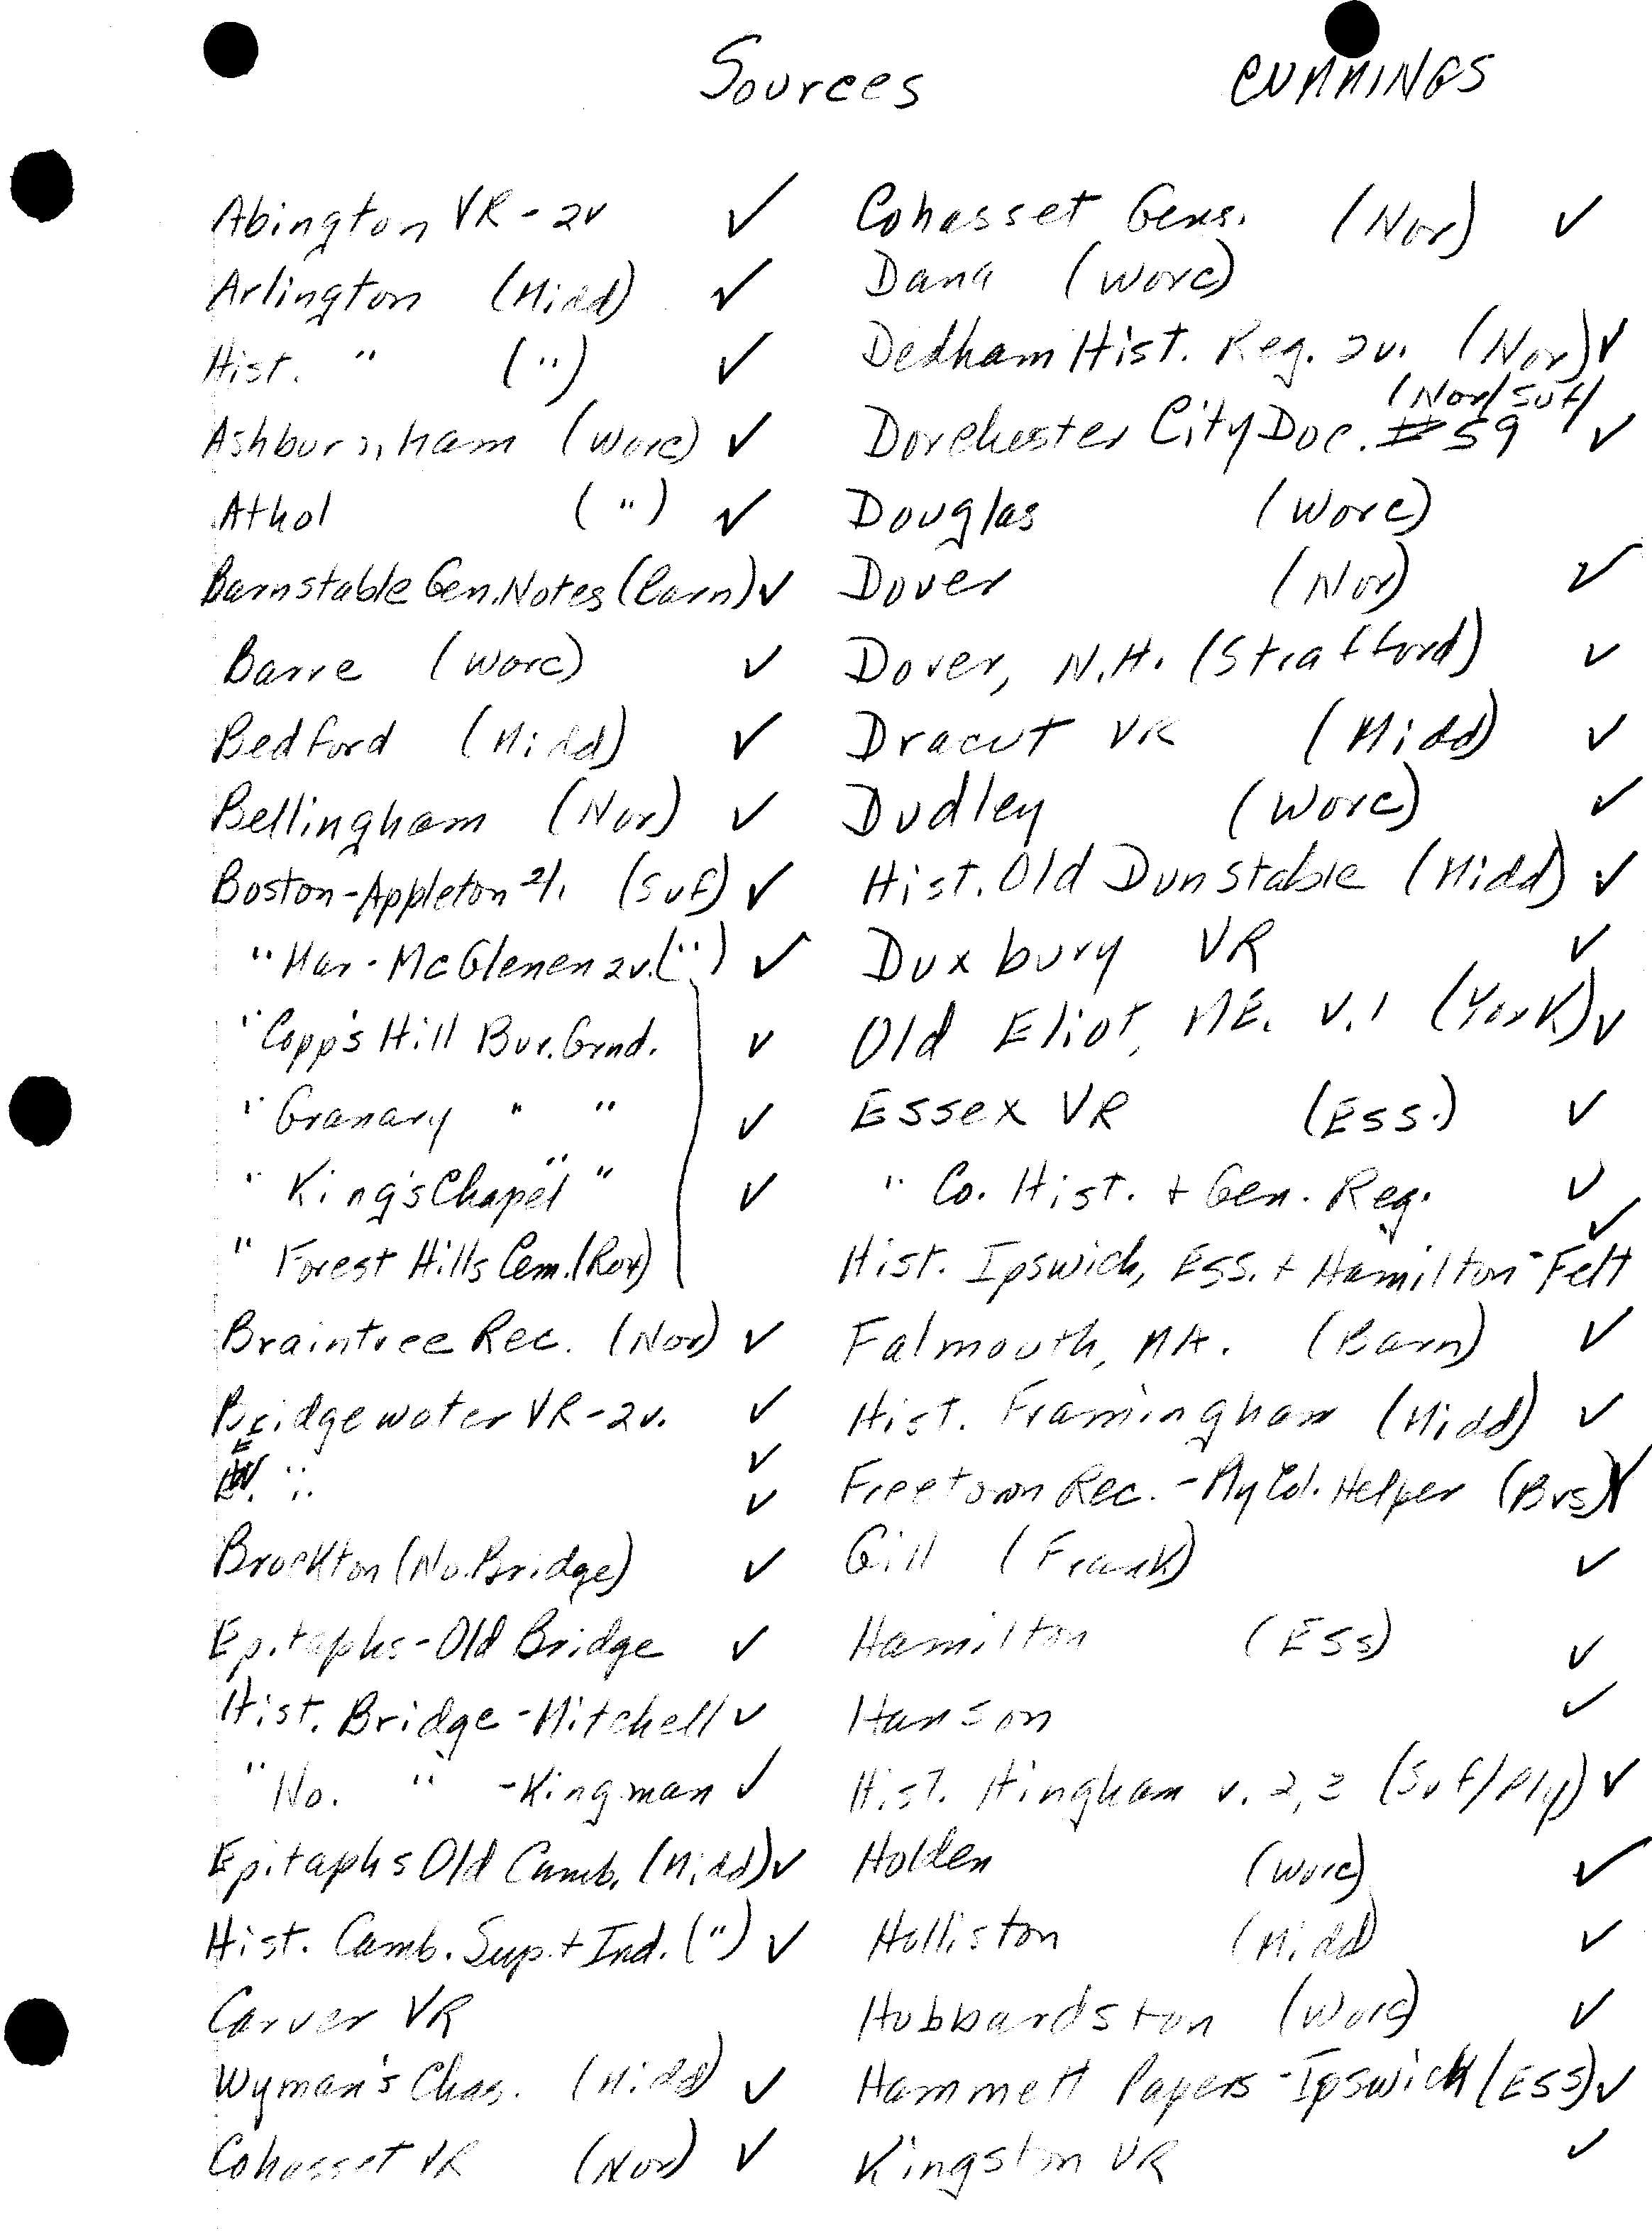 Sources
CUMMINGS
Abington VR - 2v ✓
Arlington (Midd) ✓
Hist. " (") ✓
Ashburnham (Worc) ✓
Athol (") ✓
Barnstable Gen. Notes (Barn) ✓
Barre (Worc) ✓
Bedford (Midd) ✓
Bellingham (Nor) ✓
Boston - Appleton (Suf) ✓
" Mar - McGlenen 2v. (") ✓
" Copp's Hill Bur. Grnd. ✓
" Granary " " ✓
" King's Chapel " " ✓
" Forest Hills Cem. (Rox)
Braintree Rec. (Nor) ✓
Bridgewater VR - 2v. ✓
E. " ✓
✓
Brockton (No. Bridge) ✓
Epitaphs - Old Bridge ✓
Hist. Bridge - Mitchell ✓
" No. " - Kingman ✓
Epitaphs Old Camb. (Midd) ✓
Hist. Camb. Sup. + Ind. (") ✓
Carver VR
Wyman's Chas. (Midd) ✓
Cohasset VR (Nor) ✓
Cohasset Gens. (Nor) ✓
Dana (Worc)
Dedham Hist. Reg. 2v. (Nor) ✓
(Nor/Suf)
Dorchester City Doc. #59 ✓
Douglas (Worc)
Dover (Nor) ✓
Dover, N.H. (Strafford) ✓
Dracut VR (Midd) ✓
Dudley (Worc) ✓
Hist. Old Dunstable (Midd) ✓
Duxbury VR ✓
Old Eliot, ME. v.1 (York) ✓
Essex VR (Ess.) ✓
" Co. Hist. + Gen. Reg. ✓
Hist. Ipswich, Ess. + Hamilton - Felt ✓
Falmouth, MA. (Barn) ✓
Hist. Framingham (Midd) ✓
Freetown Rec. - Ply Col. Helper (Brs) ✓
Gill (Frank) ✓
Hamilton (Ess) ✓
Hanson ✓
Hist. Hingham v. 2, 3 (Suf/Ply) ✓
Holden (Worc) ✓
Holliston (Midd) ✓
Hubbardston (Worc) ✓
Hammett Papers - Ipswich (Ess) ✓
Kingston VR ✓